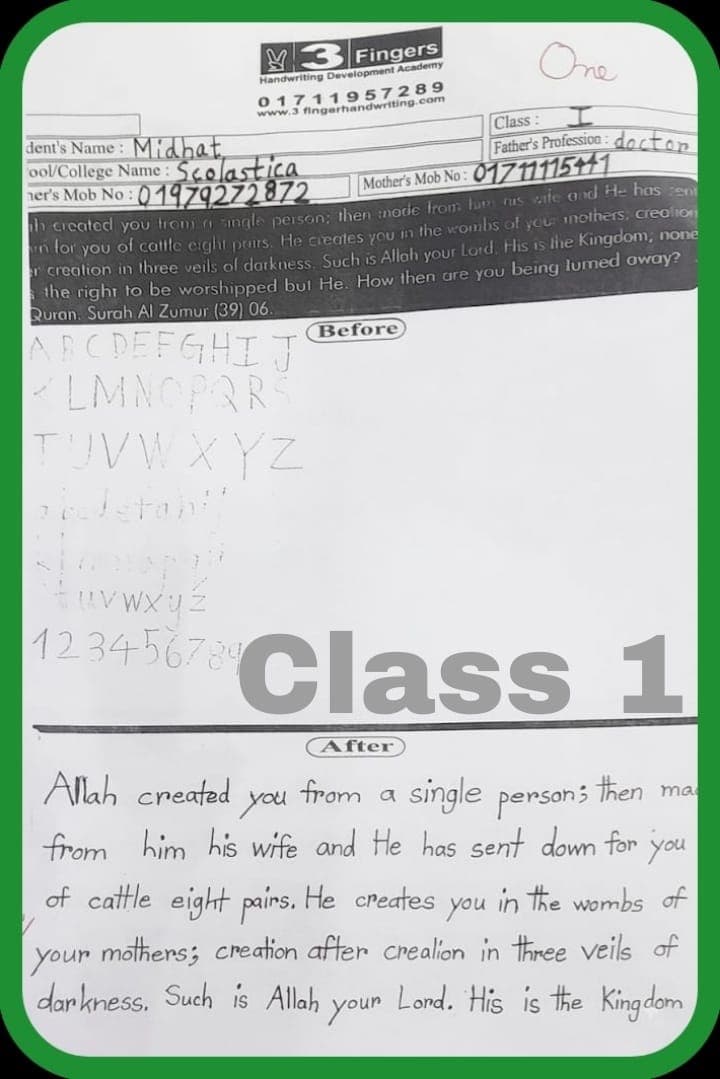 3 Fingers
Handwriting Development Academy
01711957289
www.3 fingerhandwriting.com
One
Class : I
dent's Name : Midhat
Father's Profession : doctor
ool/College Name : Scolastica
her's Mob No : 01979272872
Mother's Mob No : 01711115441
ah created you from a single person; then made from him his wife and He has sent
wn for you of cattle eight pairs. He creates you in the wombs of your mothers, creation
er creation in three veils of darkness. Such is Allah your Lord. His is the Kingdom; none
the right to be worshipped but He. How then are you being lumed away?
Quran. Surah Al Zumur (39) 06.
Before
A B C D E F G H I J
L M N O P Q R S
T U V W X Y Z
t u v w x y z
1 2 3 4 5 6 7 8 9
Class 1
After
Allah created you from a single person; then ma
from him his wife and He has sent down for you
of cattle eight pairs. He creates you in the wombs of
your mothers; creation after crealion in three veils of
darkness. Such is Allah your Lord. His is the Kingdom